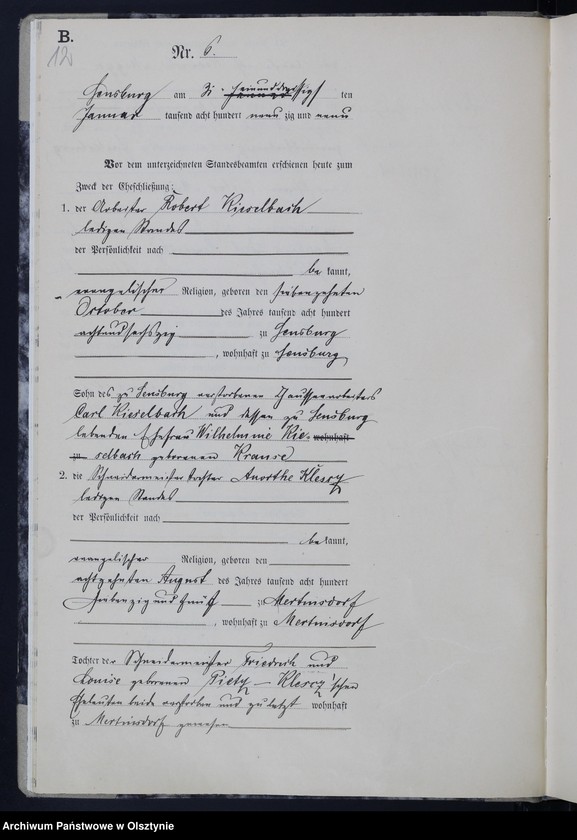 B.
12
Nr. 6.
Sensburg am ten
Januar tausend acht hundert neun zig und neun
Vor dem unterzeichneten Standesbeamten erschienen heute zum
Zweck der Eheschließung:
1. der Arbeiter Robert Kieselbach
ledigen Standes
der Persönlichkeit nach
be kannt,
evangelischer Religion, geboren den siebenzehnten
October des Jahres tausend acht hundert
achtundsechszig zu Sensburg
, wohnhaft zu Sensburg
Sohn des zu Sensburg verstorbenen
Carl Kieselbach und dessen zu Sensburg
lebenden Ehefrau Wilhelmine Kie- wohnhaft
zu selbach geborenen Krause
2. die Schneidermeistertochter Anorthe Klescz
ledigen Standes
der Persönlichkeit nach
be kannt,
evangelischer Religion, geboren den
achtzehnten August des Jahres tausend acht hundert
siebenzig und fünf zu Mertinsdorf
, wohnhaft zu Mertinsdorf
Tochter der Schneidermeister Friedrich und
Louise geborenen Klescz'schen
Eheleuten beide verstorben und zuletzt wohnhaft
zu Mertinsdorf gewesen
Archiwum Państwowe w Olsztynie